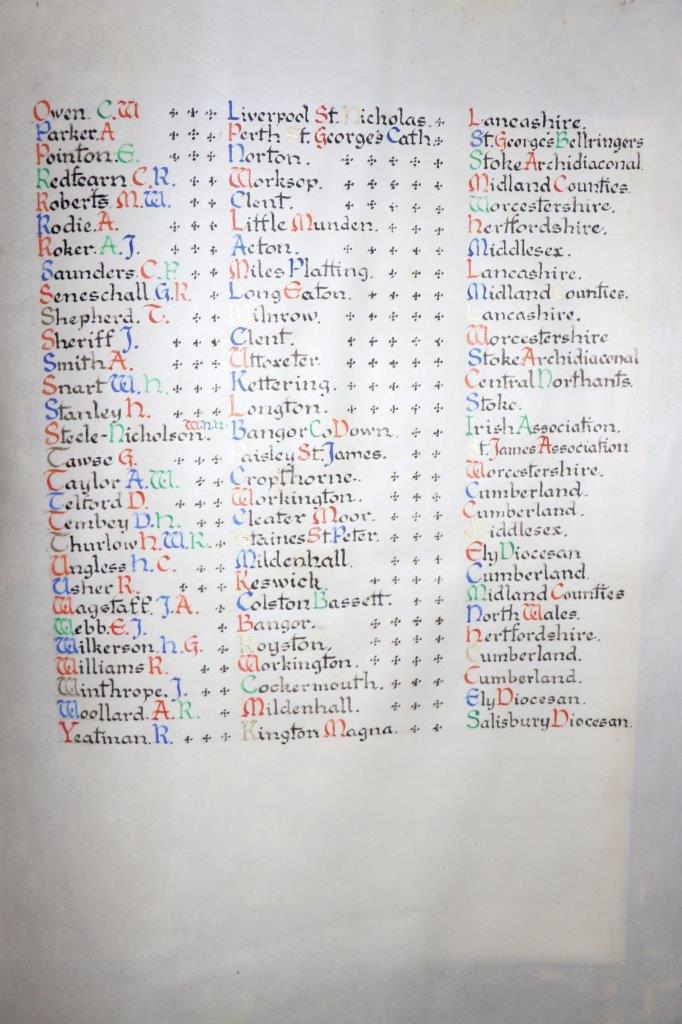 Owen. C.W Liverpool St. Nicholas. Lancashire.
Parker. A Perth St. George's Cath. St. George's Bellringers
Pointon. E. Norton. Stoke Archidiaconal
Redfearn C.R. Worksop. Midland Counties
Roberts M.W. Clent. Worcestershire.
Rodie. A. Little Munden. Hertfordshire.
Roker. A.J. Acton. Middlesex.
Saunders. C.F. Miles Platting. Lancashire.
Seneschall. G.R. Long Eaton. Midland Counties.
Shepherd. T. Milnrow. Lancashire.
Sheriff J. Clent. Worcestershire
Smith A. Uttoxeter. Stoke Archidiaconal
Snart W.H. Kettering. Central Northants.
Stanley H. Longton. Stoke.
Steele-Nicholson. W.H.H. Bangor Co Down. Irish Association.
Tawse G. Paisley St. James. St. James Association
Taylor A.W. Cropthorne. Worcestershire.
Telford D. Workington. Cumberland.
Tembey D.H. Cleator Moor. Cumberland.
Thurlow H.W.R. Staines St Peter. Middlesex.
Ungless H.C. Mildenhall. Ely Diocesan
Usher R. Keswick. Cumberland.
Wagstaff. J.A. Colston Bassett. Midland Counties
Webb. E.J. Bangor. North Wales.
Wilkerson. H.G. Royston. Hertfordshire.
Williams R. Workington. Cumberland.
Winthrope. J. Cockermouth. Cumberland.
Woollard. A.R. Mildenhall. Ely Diocesan.
Yeatman. R. Kington Magna. Salisbury Diocesan.